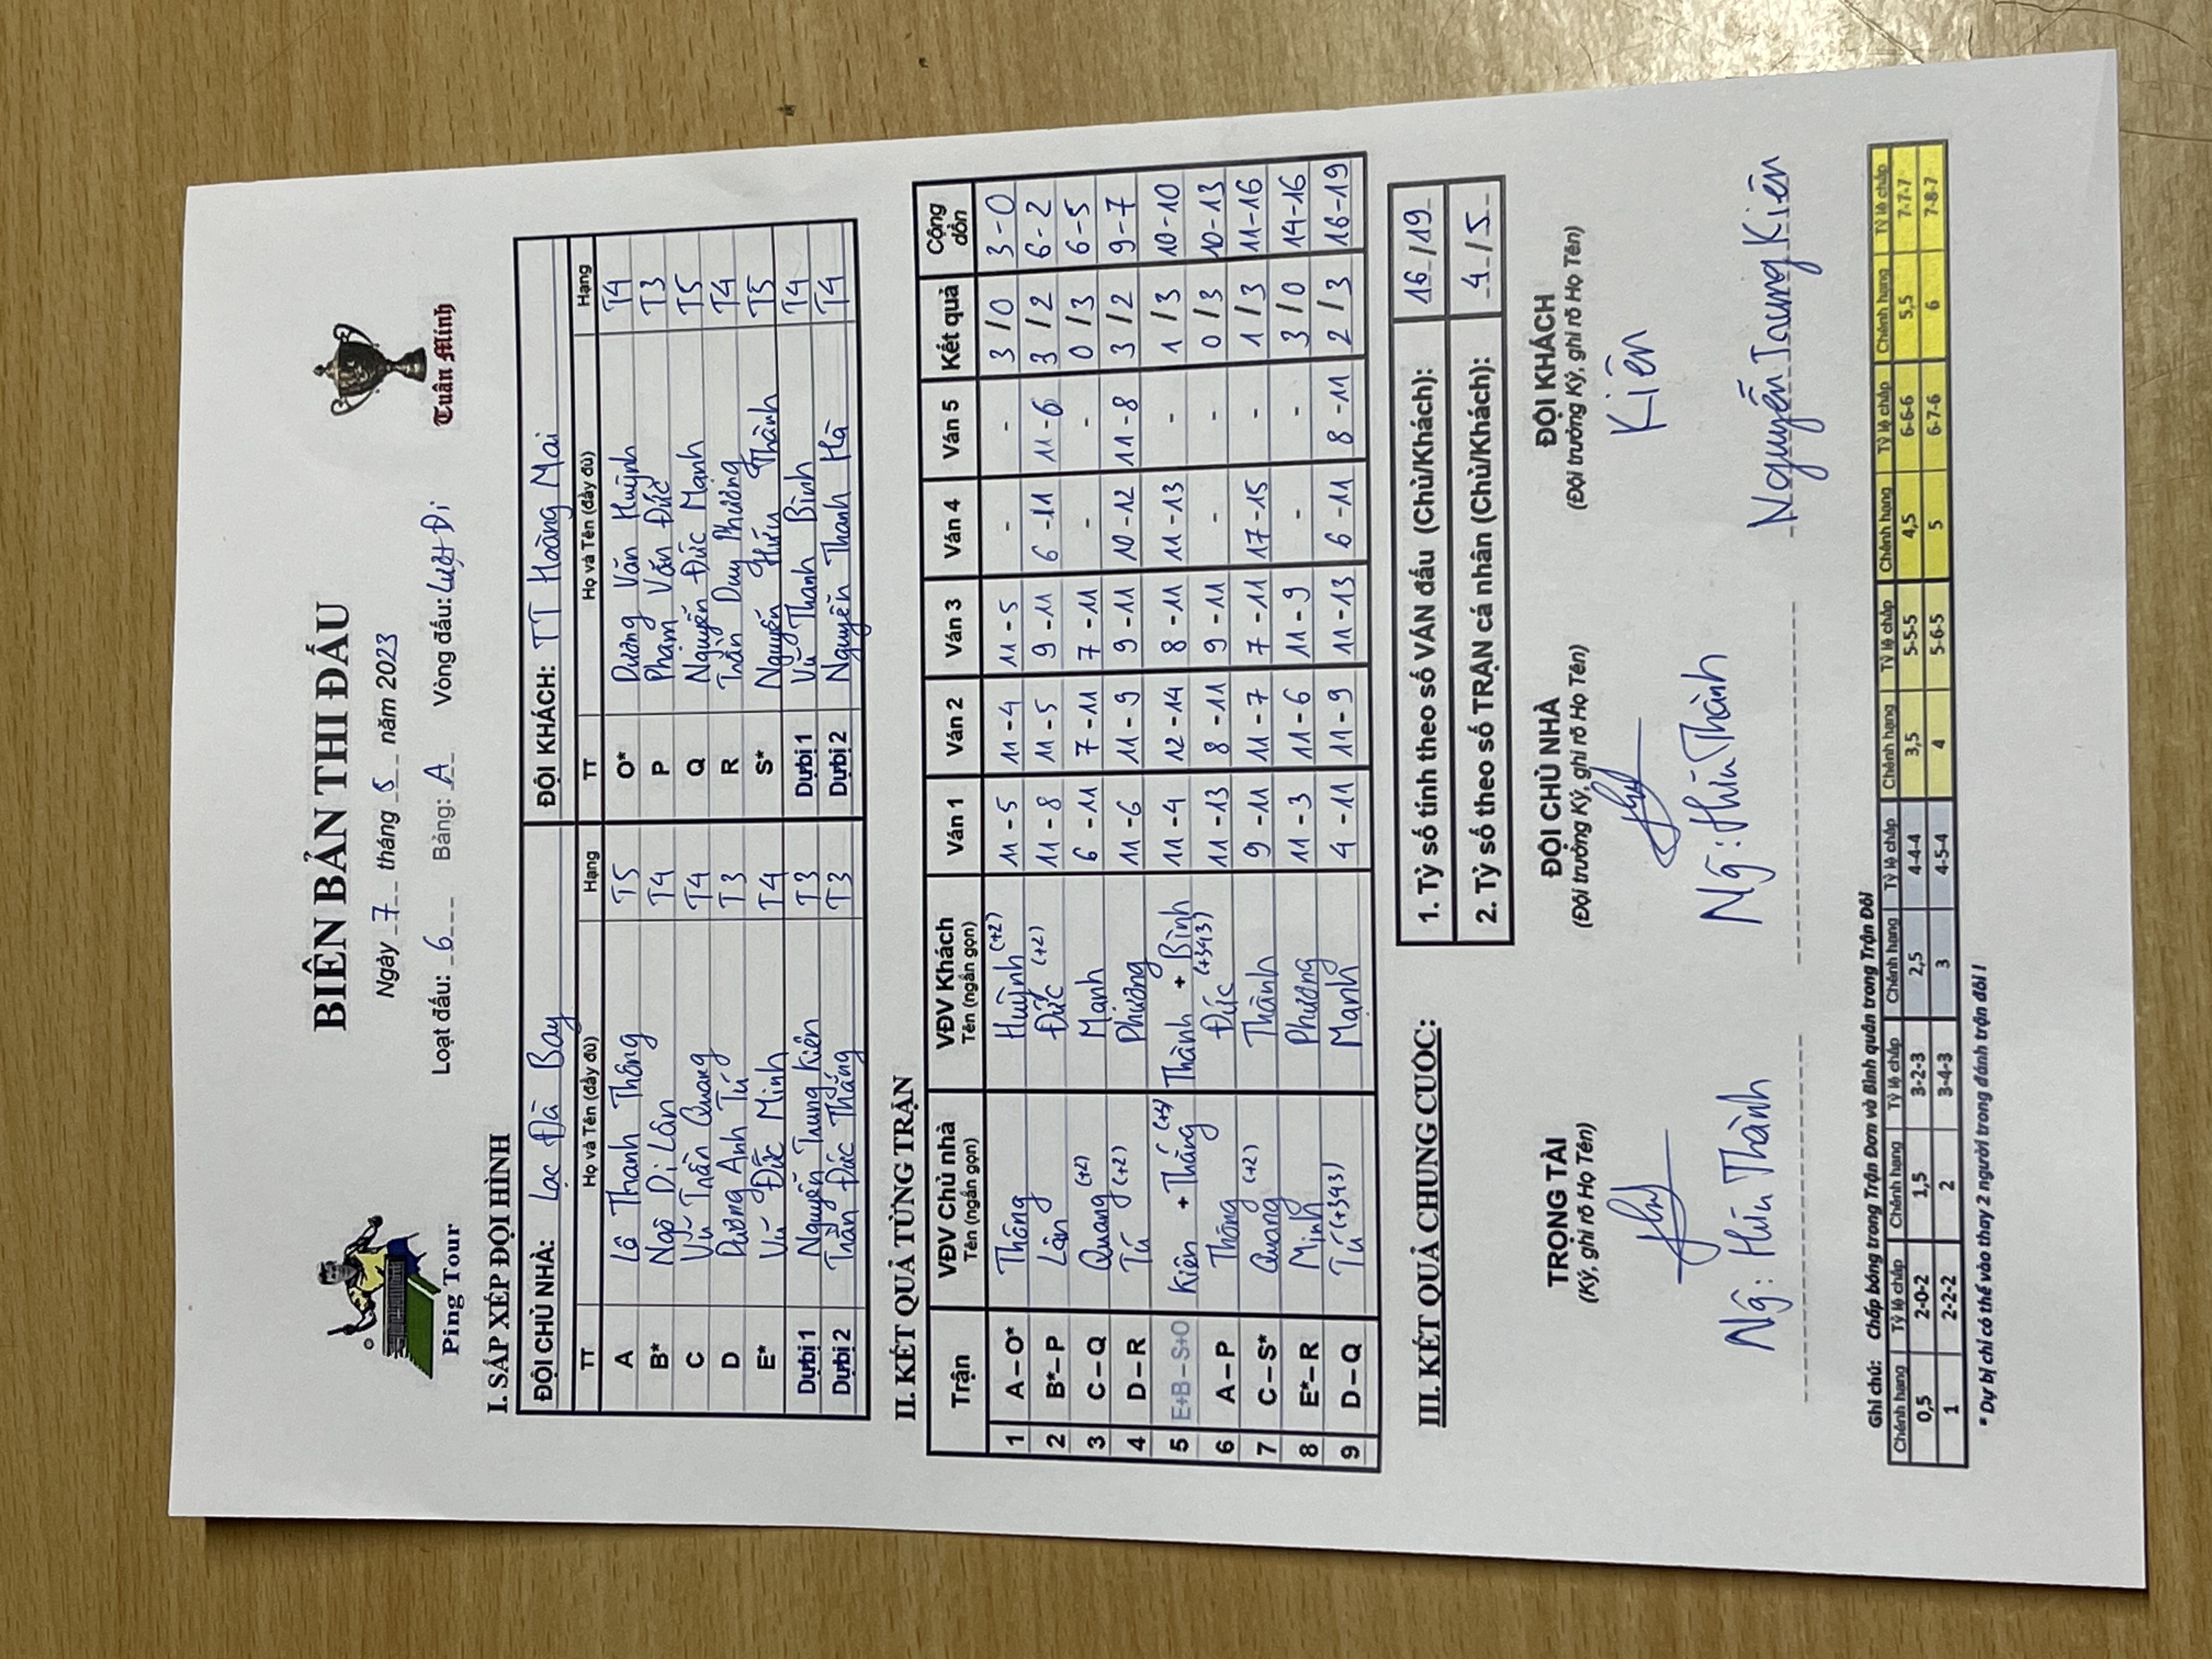 BIÊN BẢN THI ĐẤU
Ngày 7 tháng 5 năm 2023
Loạt đấu: 6 Bảng: A Vòng đấu: Lượt Đi
Ping Tour
Tuấn Minh
I. SẮP XẾP ĐỘI HÌNH
ĐỘI CHỦ NHÀ: Lạc Đà Bay ĐỘI KHÁCH: TT Hoàng Mai
TT Họ và Tên (đầy đủ) Hạng TT Họ và Tên (đầy đủ) Hạng
A Lê Thanh Thông T5 O* Dương Văn Huỳnh T4
B* Ngô Di Lân T4 P Phạm Văn Đức T3
C Vũ Trần Quang T4 Q Nguyễn Đức Mạnh T5
D Dương Anh Tú T3 R Trần Duy Phương T4
E* Vũ Đức Minh T4 S* Nguyễn Hữu Thành T5
Dự bị 1 Nguyễn Trung Kiên T3 Dự bị 1 Vũ Thanh Bình T4
Dự bị 2 Trần Đức Thắng T3 Dự bị 2 Nguyễn Thanh Hà T4
II. KẾT QUẢ TỪNG TRẬN
Trận VĐV Chủ nhà VĐV Khách Ván 1 Ván 2 Ván 3 Ván 4 Ván 5 Kết quả Cộng dồn
Tên (ngắn gọn) Tên (ngắn gọn)
1 A – O* Thông Huỳnh (+2) 11 - 5 11 - 4 11 - 5 - - 3 / 0 3 - 0
2 B* – P Lân Đức (+2) 11 - 8 11 - 5 9 - 11 6 - 11 11 - 6 3 / 2 6 - 2
3 C – Q Quang (+2) Mạnh 6 - 11 7 - 11 7 - 11 - - 0 / 3 6 - 5
4 D – R Tú (+2) Phương 11 - 6 11 - 9 9 - 11 10 - 12 11 - 8 3 / 2 9 - 7
5 E+B – S+O Kiên + Thắng Thành + Bình 11 - 4 12 - 14 8 - 11 11 - 13 - 1 / 3 10 - 10
6 A – P Thông Đức (+343) 11 - 13 8 - 11 9 - 11 - - 0 / 3 10 - 13
7 C – S* Quang (+2) Thành 9 - 11 11 - 7 7 - 11 17 - 15 - 1 / 3 11 - 16
8 E* – R Minh Phương 11 - 3 11 - 6 11 - 9 - - 3 / 0 14 - 16
9 D – Q Tú (+343) Mạnh 4 - 11 11 - 9 11 - 13 6 - 11 8 - 11 2 / 3 16 - 19
III. KẾT QUẢ CHUNG CUỘC:
1. Tỷ số tính theo số VÁN đấu (Chủ/Khách): 16 / 19
2. Tỷ số theo số TRẬN cá nhân (Chủ/Khách): 4 / 5
TRỌNG TÀI ĐỘI CHỦ NHÀ ĐỘI KHÁCH
(Ký, ghi rõ Họ Tên) (Đội trưởng Ký, ghi rõ Họ Tên) (Đội trưởng Ký, ghi rõ Họ Tên)
Kiên
Ng: Hữu Thành Ng: Hữu Thành Nguyễn Trung Kiên
Ghi chú: Chấp bóng trong Trận Đơn và Bình quân trong Trận Đôi
Chênh hạng Tỷ lệ chấp Chênh hạng Tỷ lệ chấp Chênh hạng Tỷ lệ chấp Chênh hạng Tỷ lệ chấp Chênh hạng Tỷ lệ chấp Chênh hạng Tỷ lệ chấp
0,5 2-0-2 1,5 3-2-3 2,5 4-4-4 3,5 5-5-5 4,5 6-6-6 5,5 7-7-7
1 2-2-2 2 3-4-3 3 4-5-4 4 5-6-5 5 6-7-6 6 7-8-7
* Dự bị chỉ có thể vào thay 2 người trong đánh trận đôi !